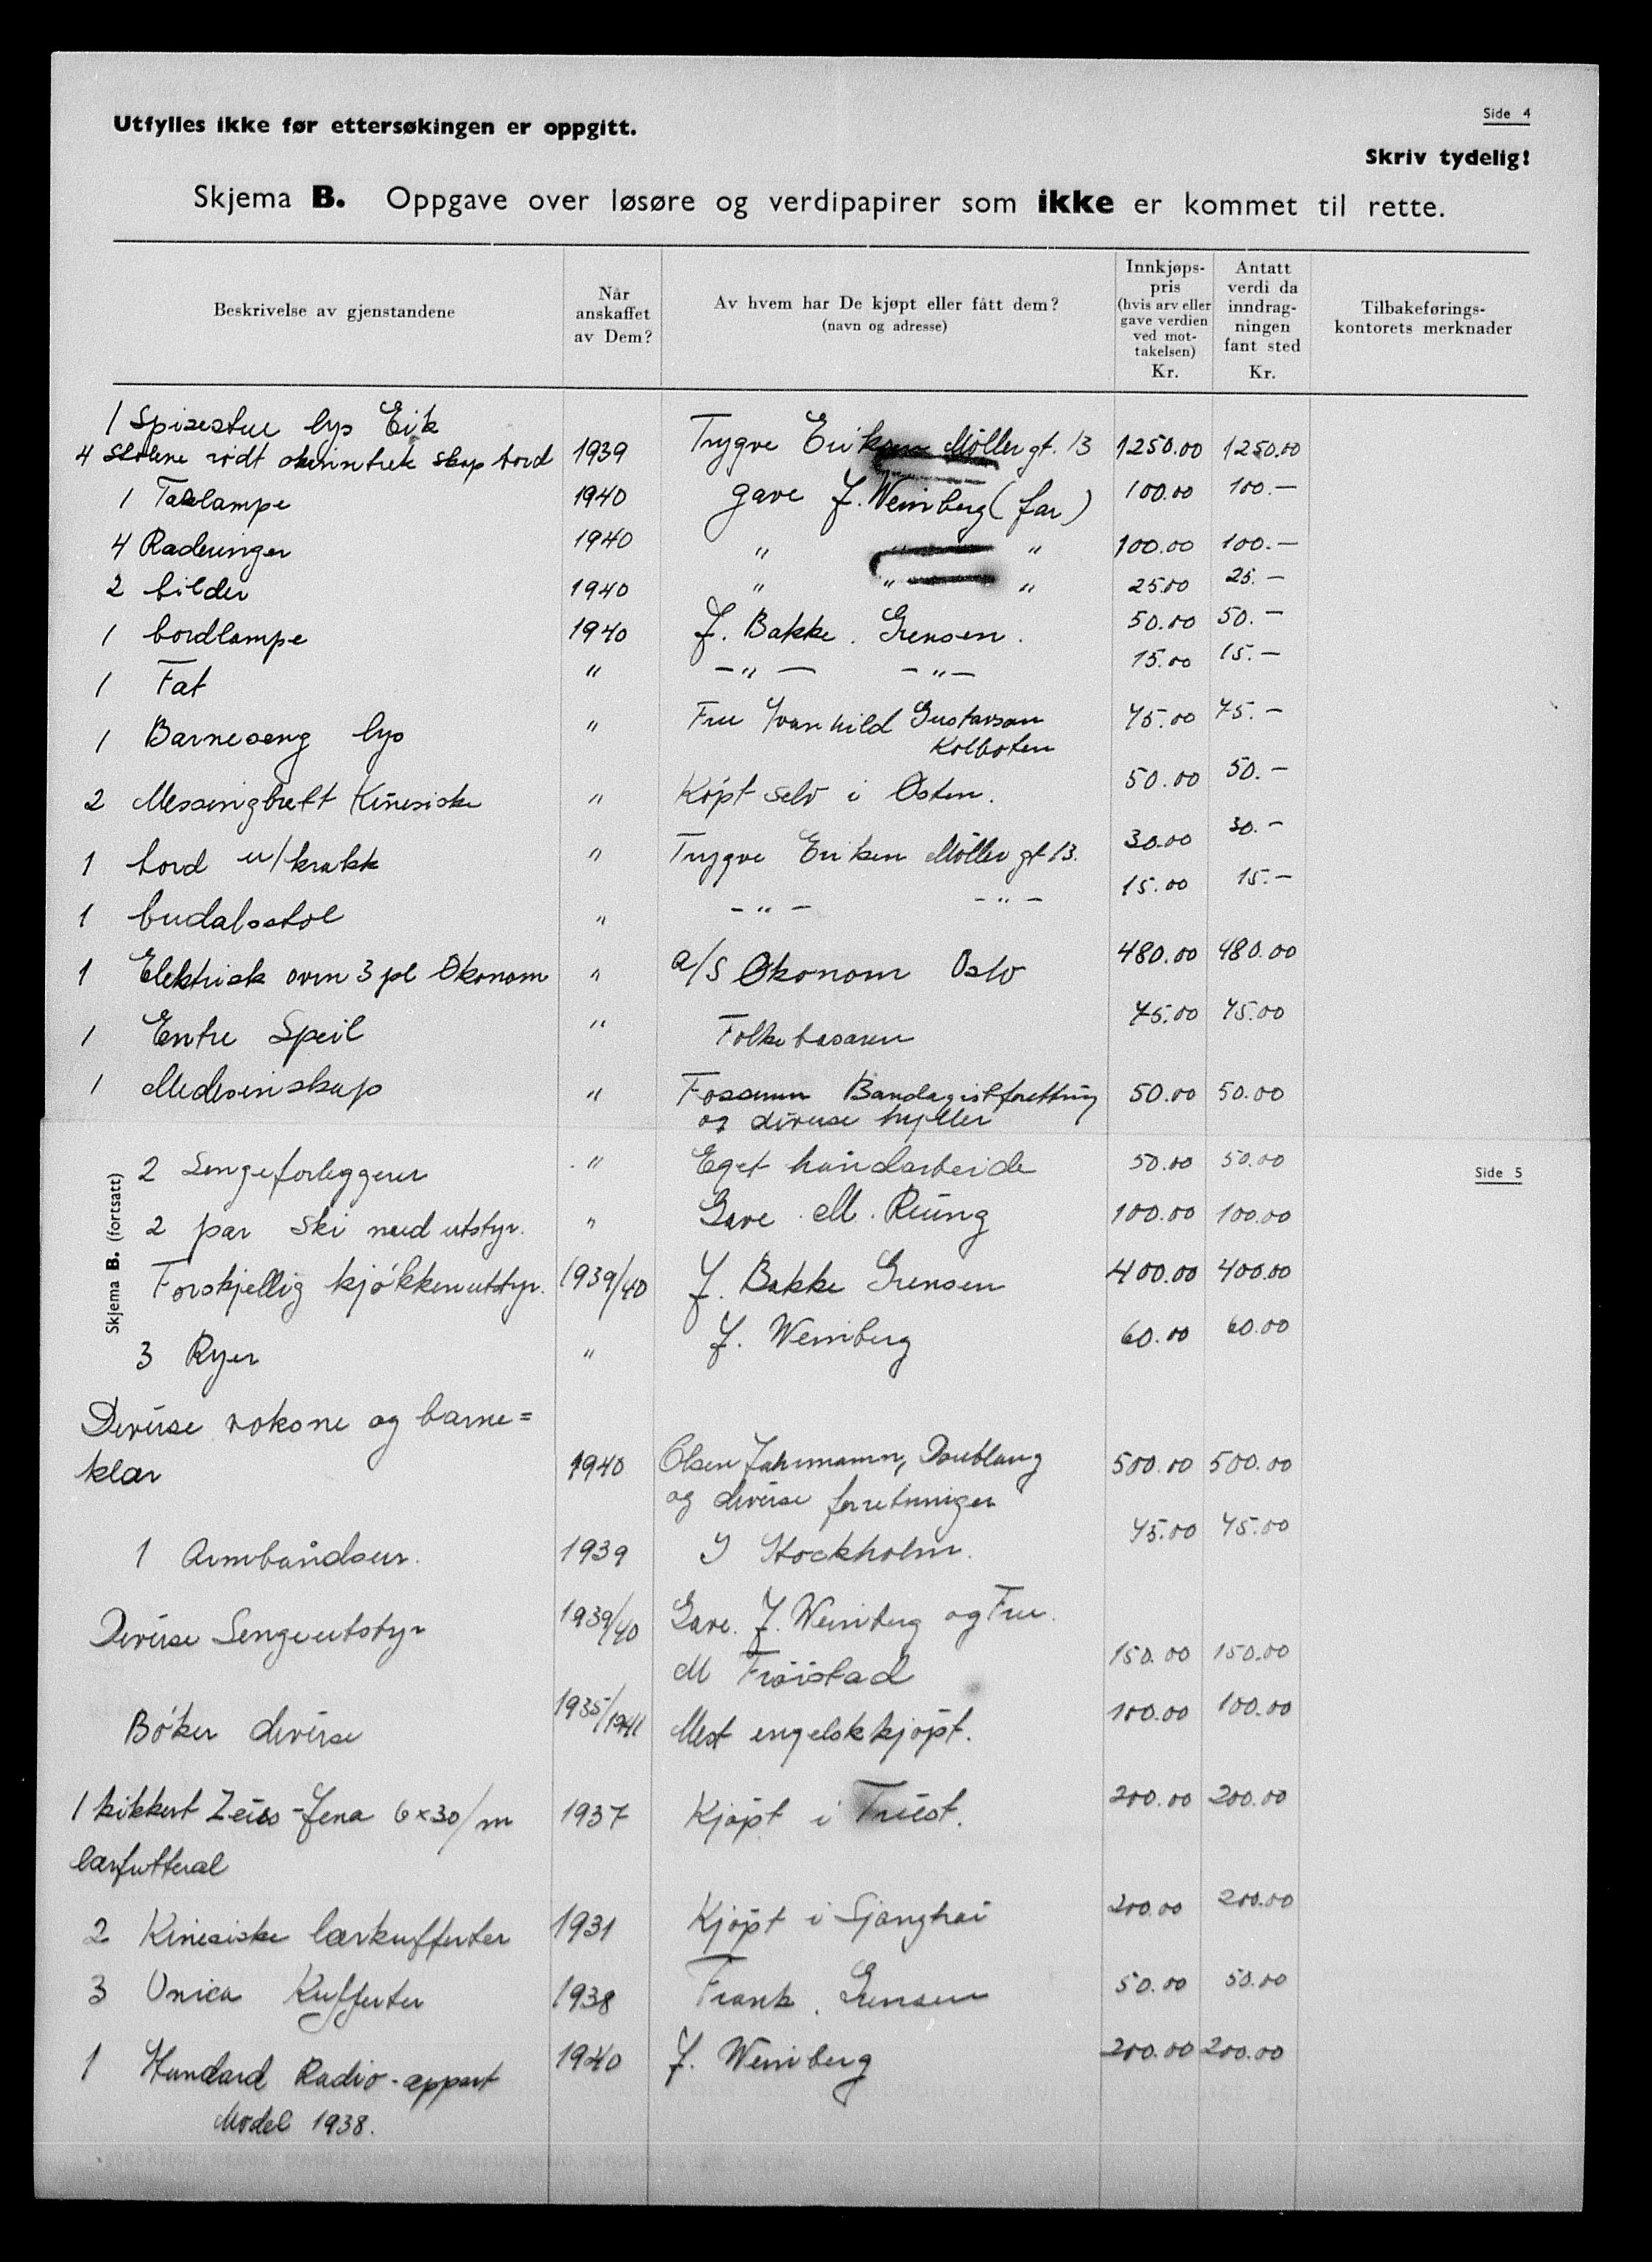 Side 4
Utfylles ikke før ettersøkingen er oppgitt.
Skriv tydelig!
Skjema B. Oppgave over løsøre og verdipapirer som ikke er kommet til rette.
Beskrivelse av gjenstandene
Når anskaffet av Dem?
Av hvem har De kjøpt eller fått dem? (navn og adresse)
Innkjøps- pris (hvis arv eller gave verdien ved mot- takelsen) Kr.
Antatt verdi da inndrag- ningen fant sted Kr.
Tilbakeførings- kontorets merknader
1 Spisestue lys Eik
4 stolene rødt skinntrek skap bord 1939 Trygve Eriksen Møllergt. 13 1250.00 1250.00
1 Taklampe 1940 gave J. Weinberg (far) 100.00 100.—
4 Raderinger 1940 " " " 100.00 100.—
2 bilder 1940 " " " 25.00 25.—
1 bordlampe 1940 J. Bakke. Grensen. 50.00 50.—
1 Fat " — " — — " — 15.00 15.—
1 Barneseng lys " Fru Ivanhild Gustavson 75.00 75.—
Kolboten
2 Messingbrett Kinesiske " Köpt selv i Østen. 50.00 50.—
1 bord u/krakk " Trygve Eriksen Møller gt 13. 30.00 30.—
1 budalsstol " — " — — " — 15.00 15.—
1 Elektrisk ovn 3 pl Økonom " A/S Økonom Oslo 480.00 480.00
1 Entre Speil " Folkebasaren 75.00 75.00
1 Medesinskap " Fossum Bandagistforettning 50.00 50.00
og diverse hyller
Side 5
Skjema B. (fortsatt)
2 Sengeforleggerer " Eget håndarbeide 50.00 50.00
2 par Ski med utstyr. " Gave M. Reung 100.00 100.00
Forskjellig kjøkkenutstyr. 1939/40 J. Bakke Grensen 400.00 400.00
3 Ryer " J. Weinberg 60.00 60.00
Diverse voksne og barne=
klær 1940 Olsen Jahrmann, Doublaug 500.00 500.00
og diverse forretninger
1 Armbåndsur. 1939 I Stockholm. 75.00 75.00
Diverse Sengeutstyr 1939/40 Gave. J. Weinberg og Fru.
M Frøistad 150.00 150.00
Bøker diverse 1935/1941 Mest engelsk kjøpt. 100.00 100.00
1 kikkert Zeiss-Jena 6x30/m 1937 Kjøpt i Triest. 200.00 200.00
lærfutteral
2 Kinesiske lærkufferter 1931 Kjøpt i Sjanghai 200.00 200.00
3 Unica Kufferter 1938 Frank. Grensen 50.00 50.00
1 Standard Radio-appart 1940 J. Weinberg 200.00 200.00
Model 1938.